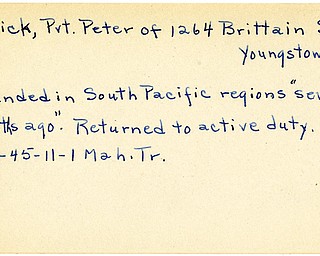 ick, Pvt. Peter of 1264 Brittain S
Youngstow
nded in South Pacific regions "sev
ths ago". Returned to active duty.
-45-11-1 Mah. Tr.